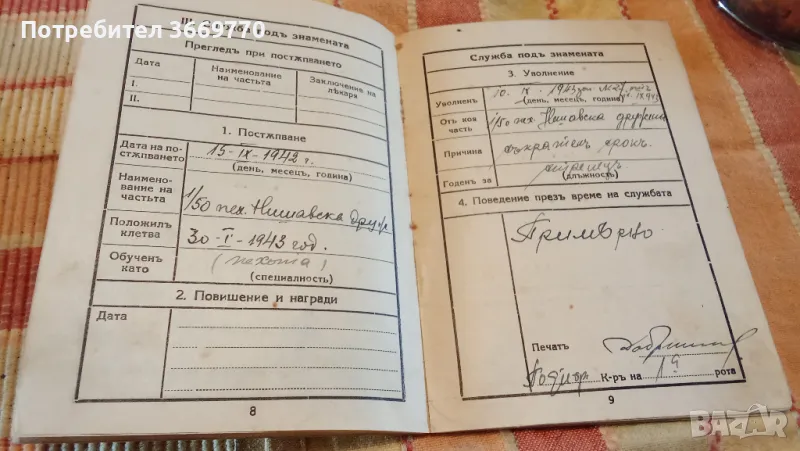 Потребител 3669770
III. Служба подъ знамената
Прегледъ при постѫпването
Дата
Наименование на частьта
Заключение на лѣкаря
I.
II.
1. Постѫпване
Дата на постѫпването
15-IX-1942 г.
(день, месецъ, година)
Наименование на частьта
1/50 пех. Нишавска друж.
Положилъ клетва
30-I-1943 год.
Обученъ като
(пехота)
(специалность)
2. Повишение и награди
Дата
8
Служба подъ знамената
3. Уволнение
Уволненъ
10. IX. 1943
(день, месецъ, година)
Отъ коя часть
1/50 пех. Нишавска дружина
Причина
съкратенъ
Годенъ за
(должность)
4. Поведение презъ време на службата
Примѣрно
Печатъ
К-ръ на 1
рота
9
BAZAR